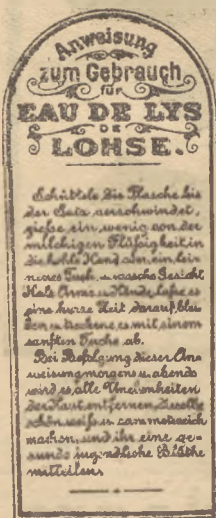 Anweisung
zum Gebrauch
für
EAU DE LYS
DE
LOHSE.
Schüttele die Flasche bis
der Satz verschwindet,
giesse ein wenig von der
milchigen Flüssigkeit in
die hohle Hand oder ein lei-
nenes Tuch u. wasche Gesicht
Hals Arme u. Hände, lasse es
eine kurze Zeit darauf blei-
ben u. trockene es mit einem
sanften Tuche ab.
Bei Befolgung dieser An-
weisung morgens u. abends
wird es alle Unreinheiten
der Haut entfernen, dieselbe
schön weiss u. sammetweich
machen, und ihr eine ge-
sunde jugendliche Blüthe
mitteilen.